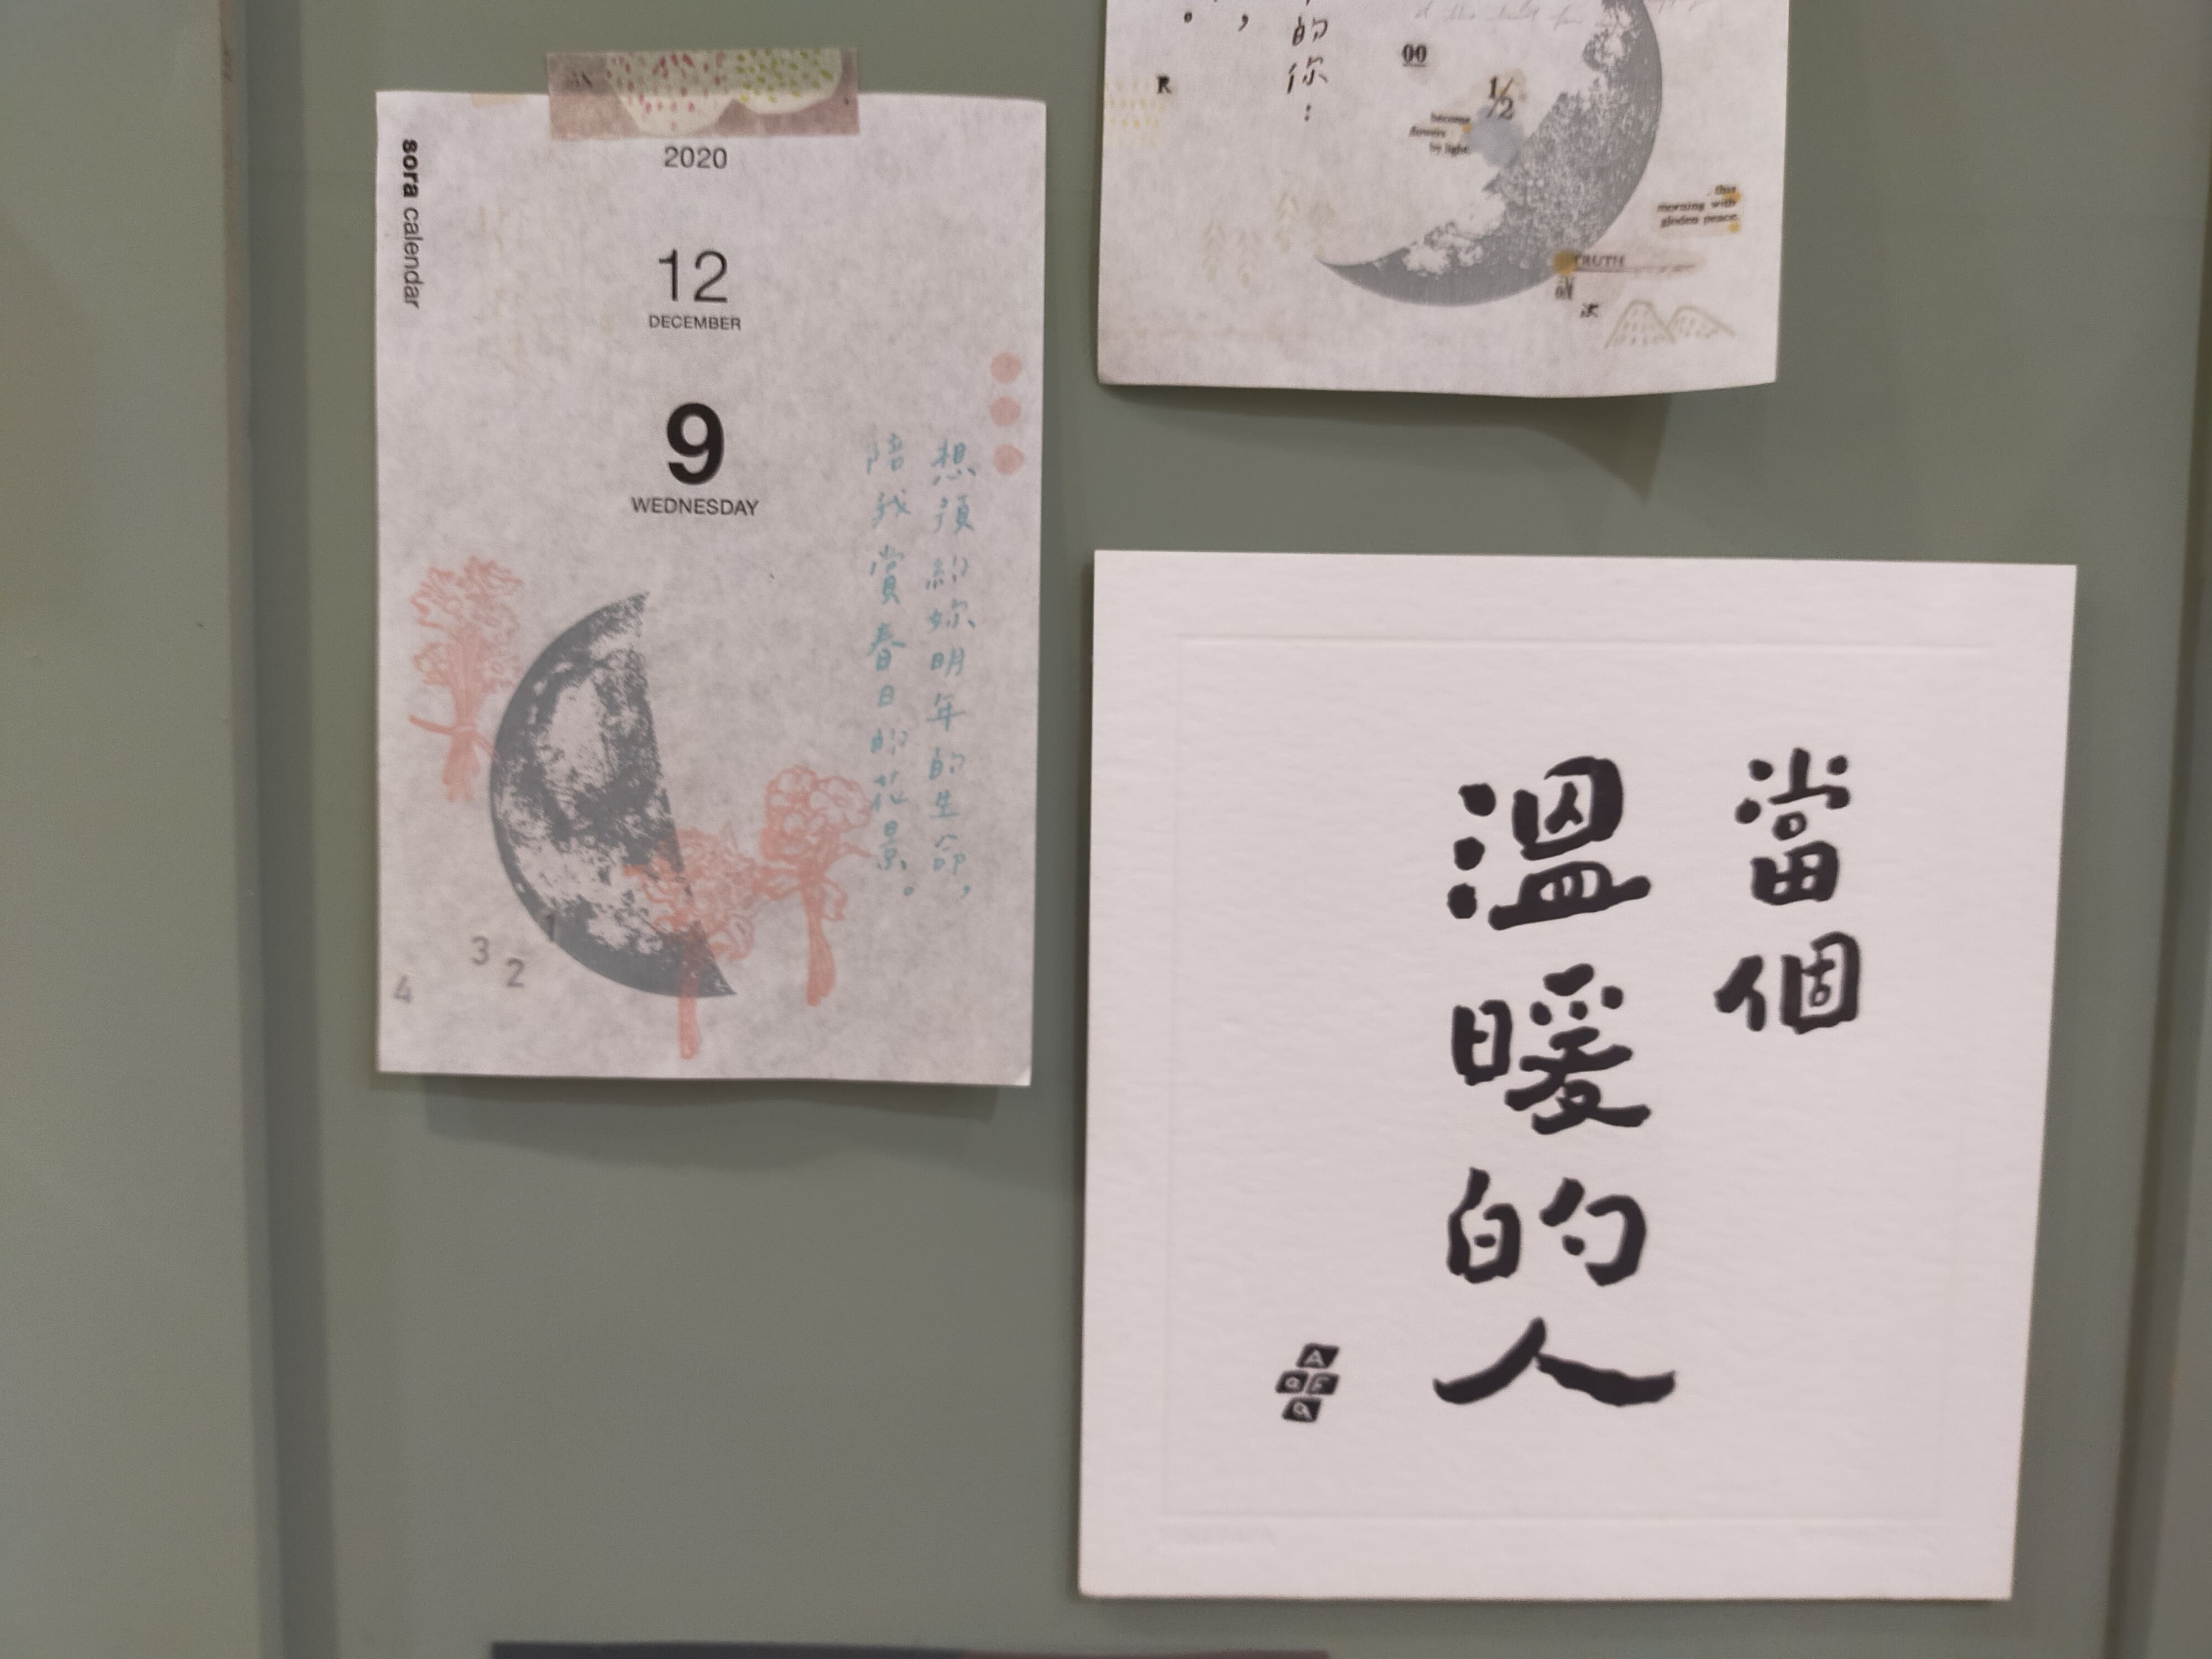 sora calendar
2020
12
DECEMBER
9
WEDNESDAY
想預約妳明年的生命，
陪我賞春日的花景。
1
3
2
4
的你：
R
00
1/2
become
flowers
by light
this
morning with
gloden peace
TRUTH
當個
溫暖的人